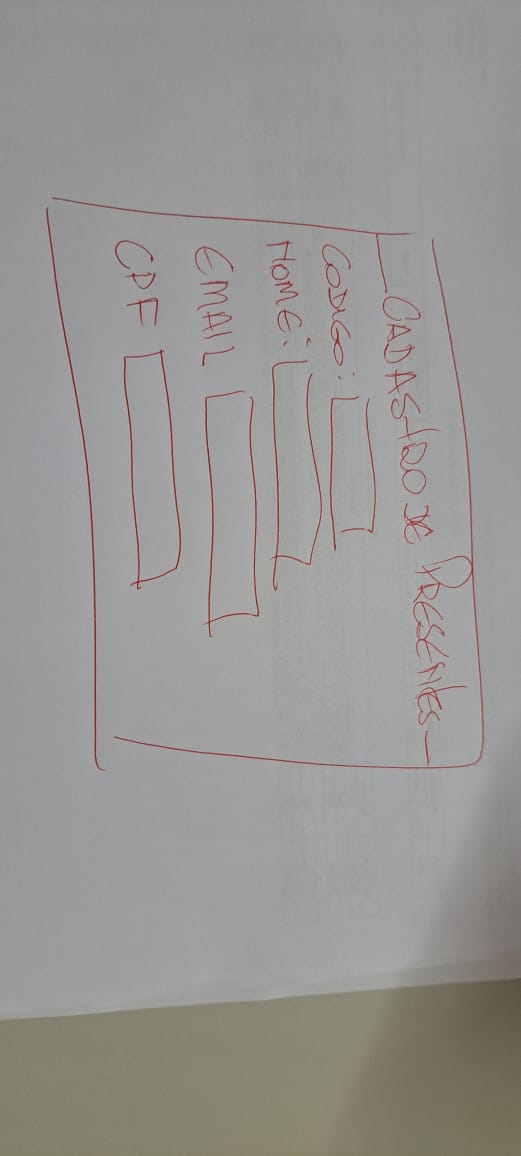 CADASTRO DE PRESENTES
CODIGO:
NOME:
EMAIL
CPF